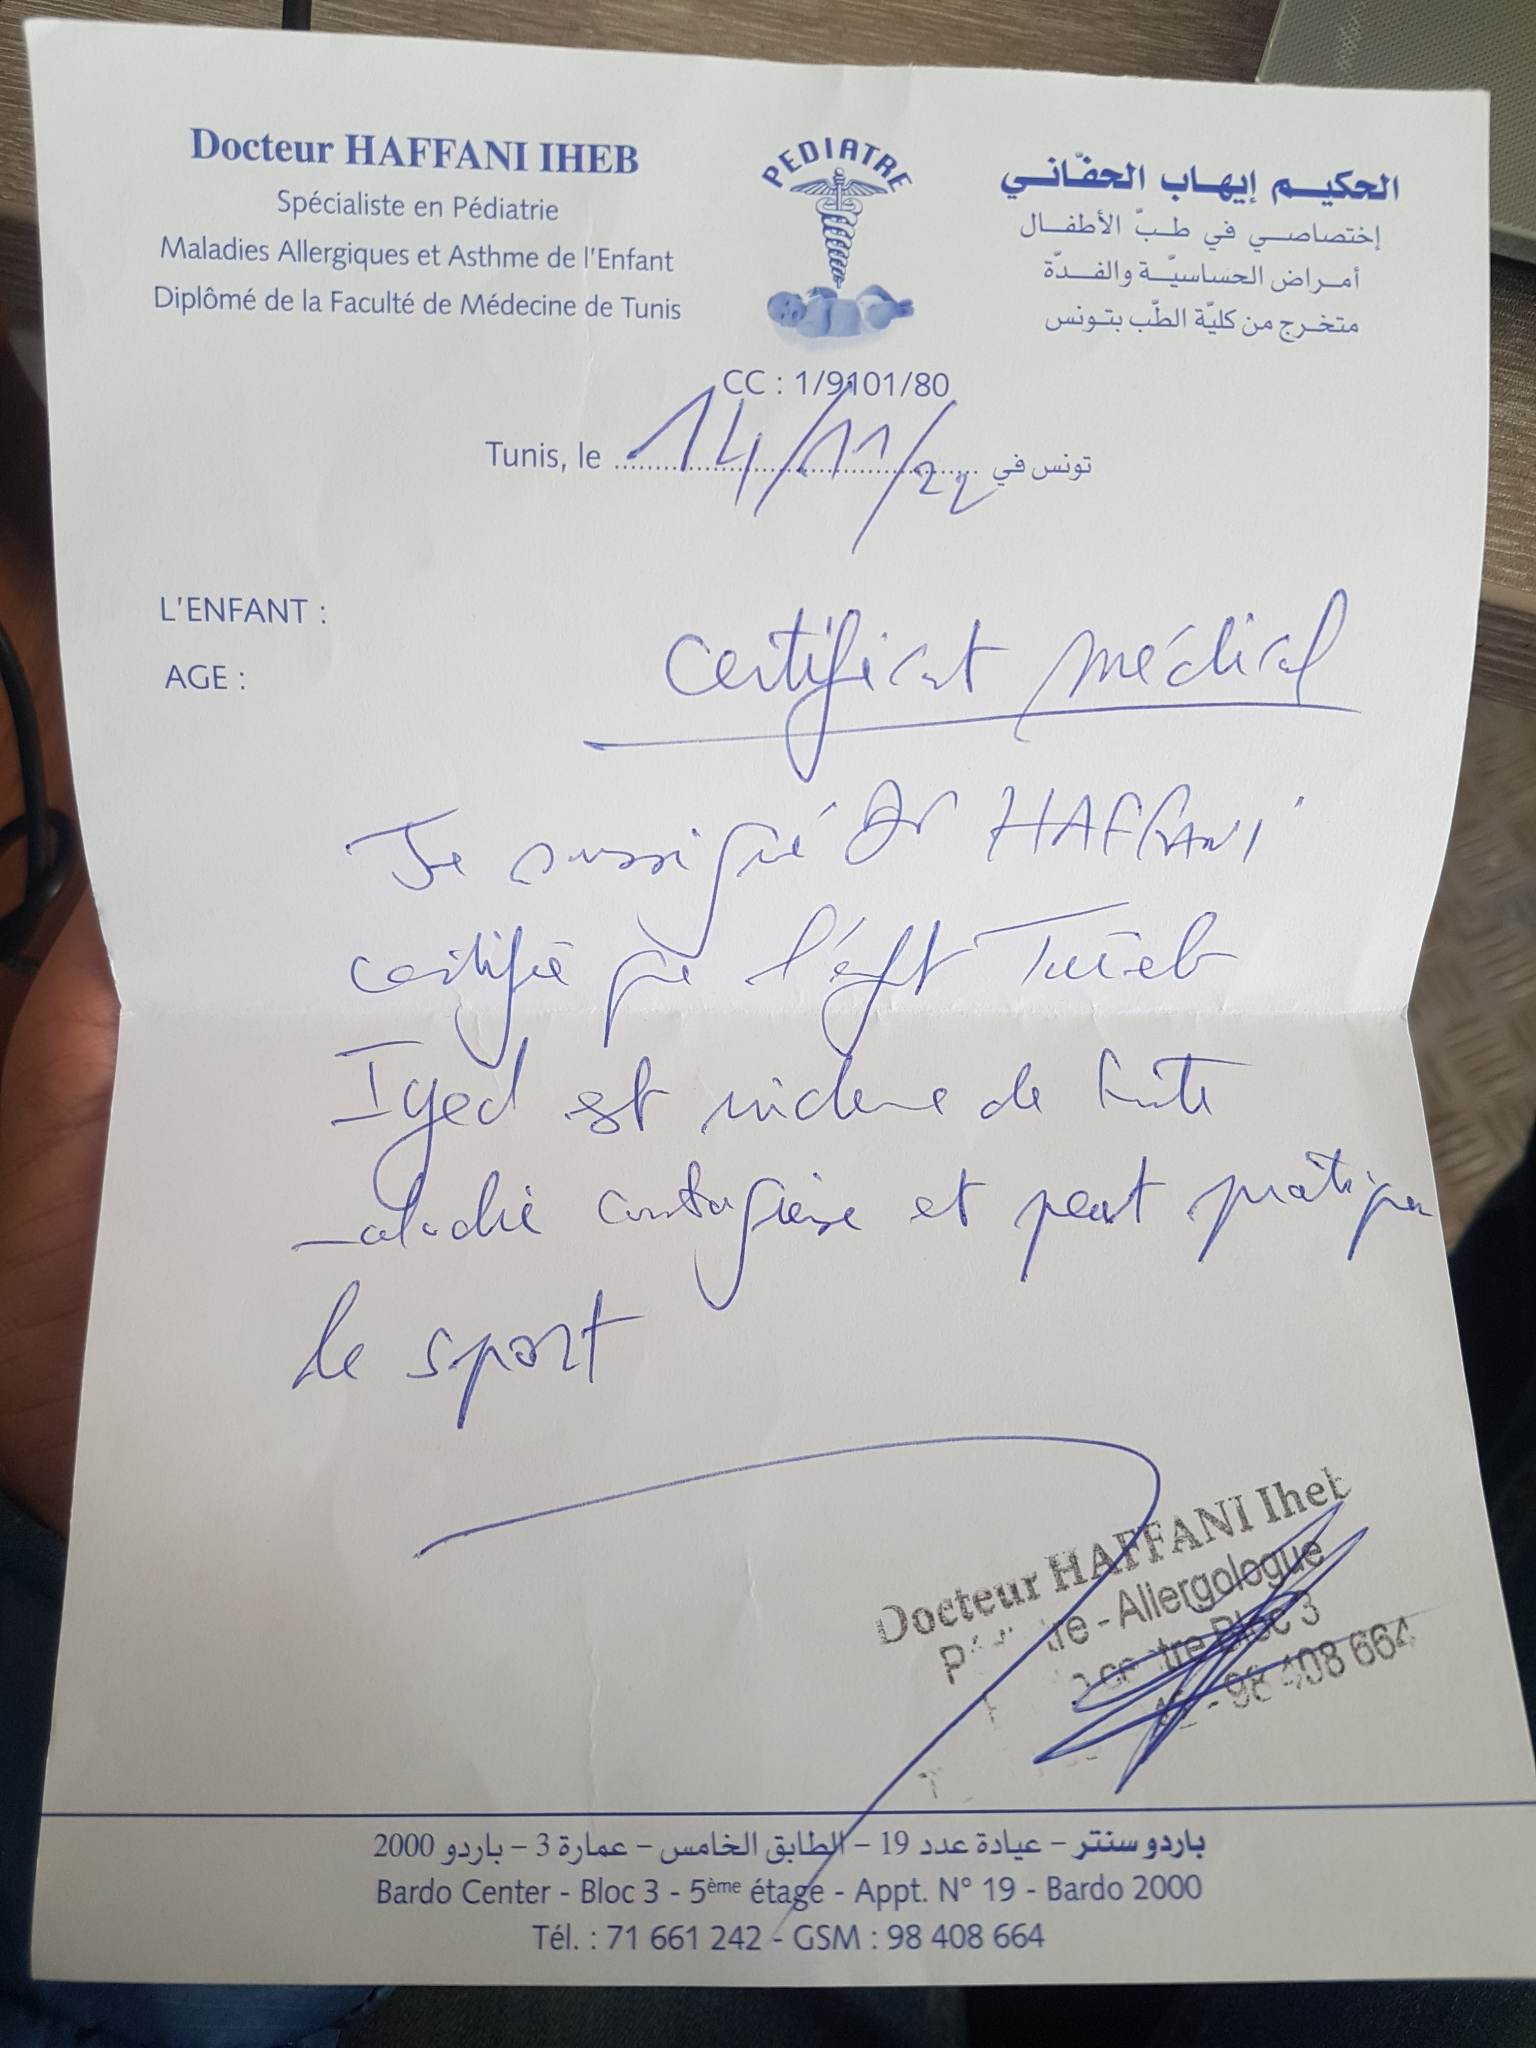 Docteur HAFFANI IHEB
Spécialiste en Pédiatrie
Maladies Allergiques et Asthme de l'Enfant
Diplômé de la Faculté de Médecine de Tunis
PEDIATRE
الحكيم إيهاب الحفّاني
إختصاصي في طبّ الأطفال
أمراض الحساسيّة والفدّة
متخرج من كليّة الطّب بتونس
CC : 1/9101/80
Tunis, le 14/11/22 تونس في
L'ENFANT :
AGE :
Certificat médical
Je soussigné Dr HAFFANI
certifie que l'enft
Iyed est indemne de toute
maladie contagieuse et peut pratiquer
le sport
Docteur HAFFANI Iheb
- Allergologue
Bloc 3
- 98 408 664
باردو سنتر – عيادة عدد 19 – الطابق الخامس – عمارة 3 – باردو 2000
Bardo Center - Bloc 3 - 5ème étage - Appt. N° 19 - Bardo 2000
Tél. : 71 661 242 - GSM : 98 408 664